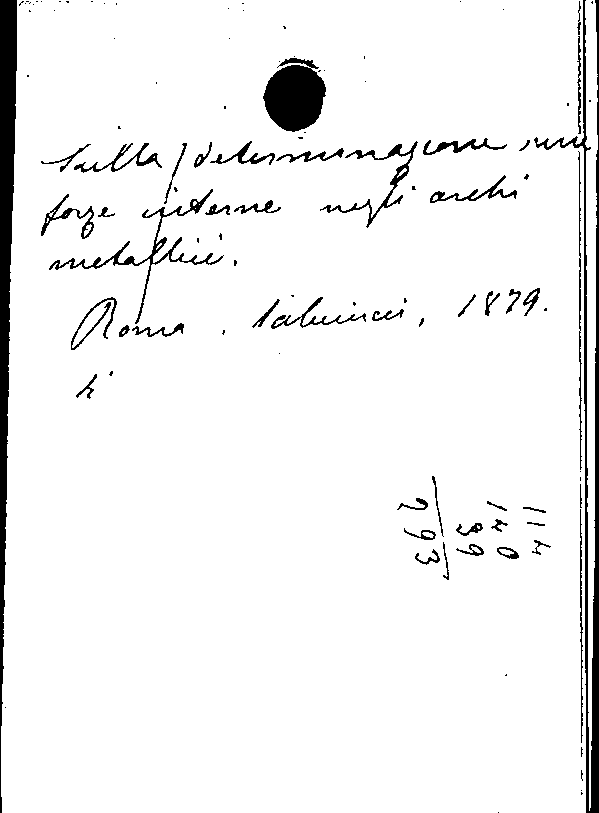 Sulla determinazione
forze interne negli archi
metallici.
Roma. Salviucci, 1879.
4°
114
140
39
293